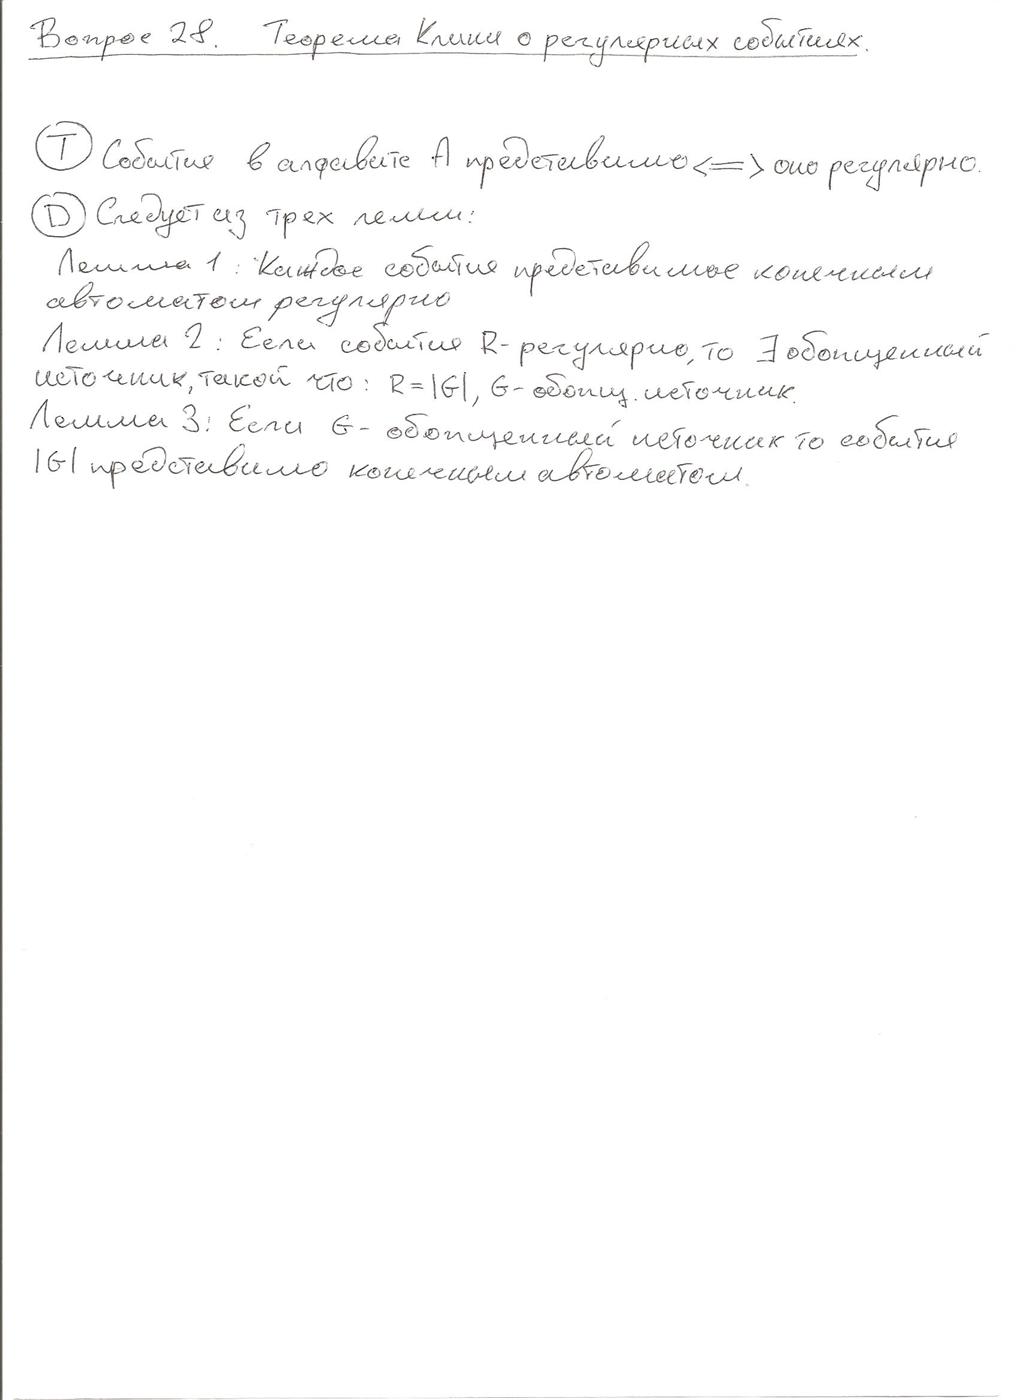 Вопрос 28. Теорема Клини о регулярных событиях.
Т Событие в алфавите А представимо <=> оно регулярно.
D Следует из трех лемм:
Лемма 1: Каждое событие представимое конечным
автоматом регулярно
Лемма 2: Если событие R-регулярно, то ∃ обобщенный
источник, такой что: R=|G|, G-обобщ. источник.
Лемма 3: Если G- обобщенный источник то событие
|G| представимо конечным автоматом.